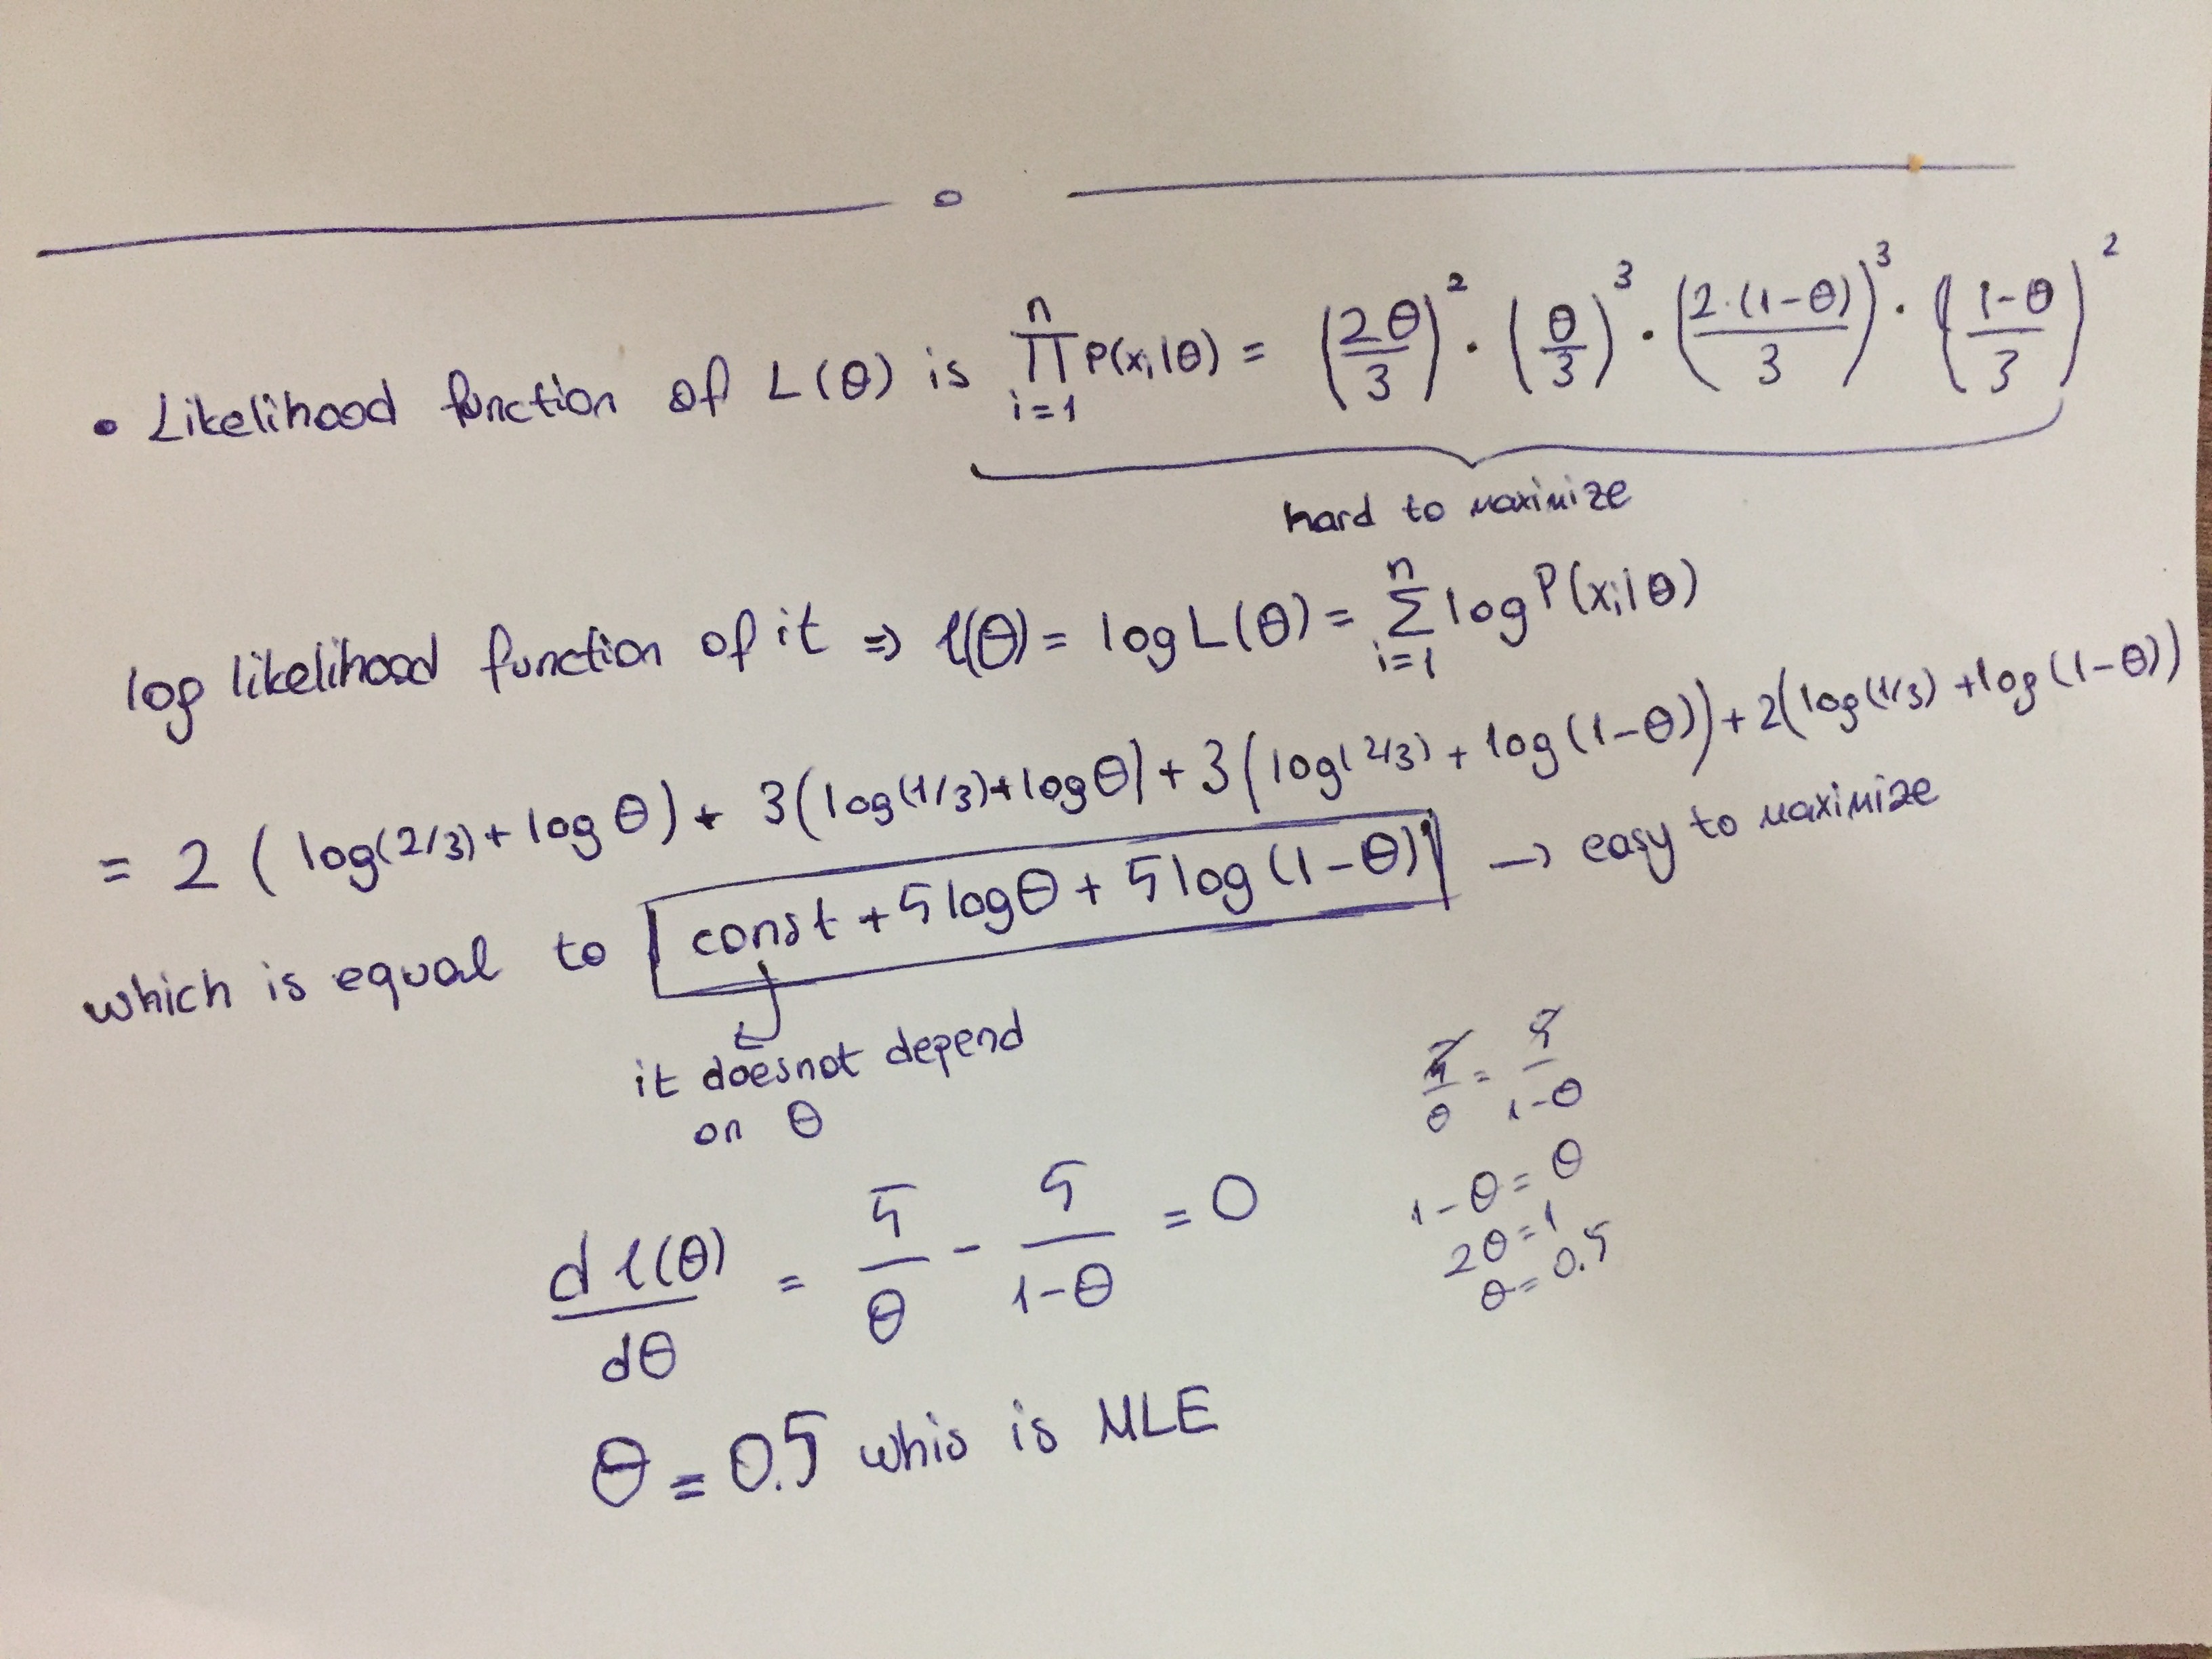 • Likelihood function of L(θ) is ∏_{i=1}^{n} P(x_i|θ) = (2θ/3)^2 · (θ/3)^3 · (2·(1-θ)/3)^3 · (1-θ/3)^2
hard to maximize
log likelihood function of it ⇒ l(θ) = log L(θ) = Σ_{i=1}^{n} log P(x_i|θ)
= 2 (log(2/3) + log θ) + 3(log(1/3) + log θ) + 3(log(2/3) + log(1-θ)) + 2(log(1/3) + log(1-θ))
which is equal to const + 5 log θ + 5 log (1-θ) → easy to maximize
it doesnot depend
on θ
5/θ = 5/1-θ
1-θ = θ
2θ = 1
θ = 0.5
d l(θ)/dθ = 5/θ - 5/1-θ = 0
θ = 0.5 whis is MLE